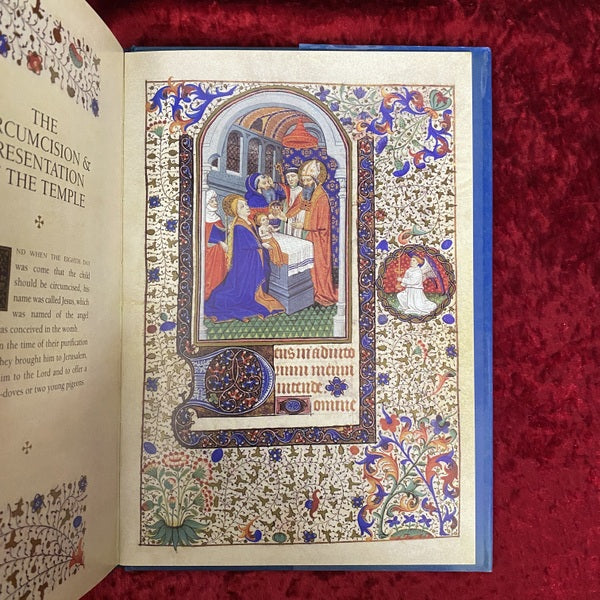 THE
RCUMCISION &
RESENTATION
THE TEMPLE
ND WHEN THE EIGHTH DAY
was come that the child
should be circumcised, his
name was called Jesus, which
was named of the angel
as conceived in the womb.
the time of their purification
hey brought him to Jerusalem,
im to the Lord and to offer a
-doves or two young pigeons.
Deus in adiuto
rium meum
intende
Domine